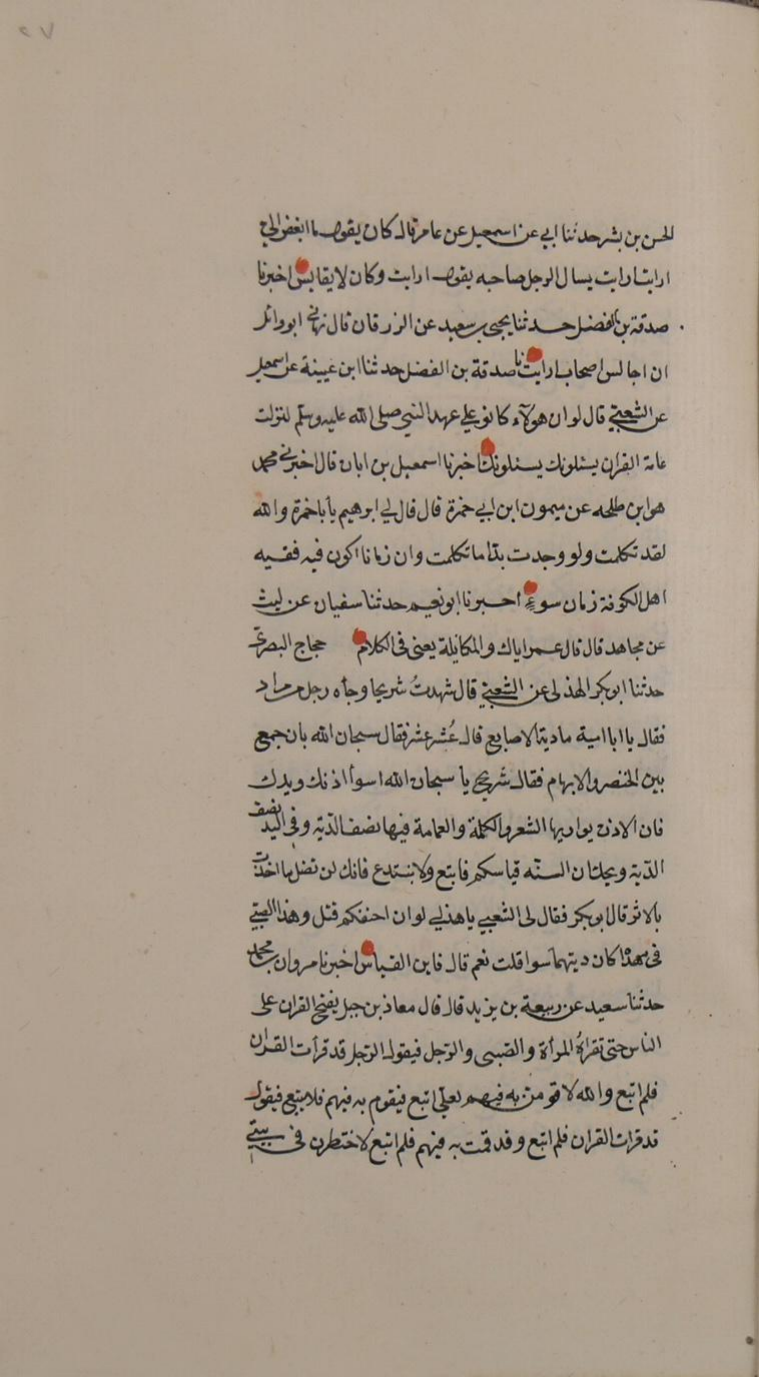 ٢٧
الحسن بن بشر حدثنا ابي عن اسمعيل عن عامر قال كان يقول ما ابغض الي
ارايت ارايت يسال الرجل صاحبه يقول ارايت وكان لا يقايس اخبرنا
صدقة بن الفضل حدثنا يحيى بن سعيد عن الزرقان قال نهاني ابو وائل
ان اجالس اصحاب ارايت نا صدقة بن الفضل حدثنا ابن عيينة عن اسمعيل
عن الشعبي قال لو ان هولآء كانو علي عهد النبي صلى الله عليه وسلم لنزلت
عامة القران يسئلونك يسئلونك اخبرنا اسمعيل بن ابان قال اخبرني محمد
هو ابن طلحه عن ميمون ابن ابي حمزة قال قال لي ابرهيم يأبا حمزة والله
لقد تكلمت ولو وجدت بدا ما تكلمت وان زمانا اكون فيه فقيه
اهل الكوفة زمان سوءٍ أخبرنا ابو نعيم حدثنا سفيان عن ليث
عن مجاهد قال قال عمر اياك والمكايلة يعني في الكلام حجاج البصري
حدثنا ابو بكر الهذلي عن الشعبي قال شهدتُ شريحا وجأه رجل من مراد
فقال يا ابا امية ما دية الاصابع قال عُشر عشر فقال سبحان الله بان جمع
بين الخنصر والابهام فقال شريح يا سبحان الله اسوأ اذنك ويدك
فان الاذن يواريها الشعر والكلمة والعمامة فيها نصف الدّية وفي اليد نصف
الدّية ويحك ان السنّه قياسكم فاتبع ولا تبتدع فانك لن تضل ما اخذت
بالاثر قال ابو بكر فقال لى الشعبي يا هذلي لو ان احنفكم قتل وهذا الصبي
في مهده كان ديتهما سوا قلت نعم قال فاين القياس اخبرنا مروان بن محمد
حدثنا سعيد عن ربيعة بن يزيد قال قال معاذ بن جبل يفتح القران على
الناس حتى تقراهُ المرأة والصبى والرّجل فيقول الرّجل قد قرأت القران
فلم اتبع والله لاقومن به فيهم لعلي اتبع فيقوم به فيهم فلا يتبع فيقول
قد قرات القران فلم اتبع وقد قمت به فيهم فلم اتبع لاختطرن في بيتي